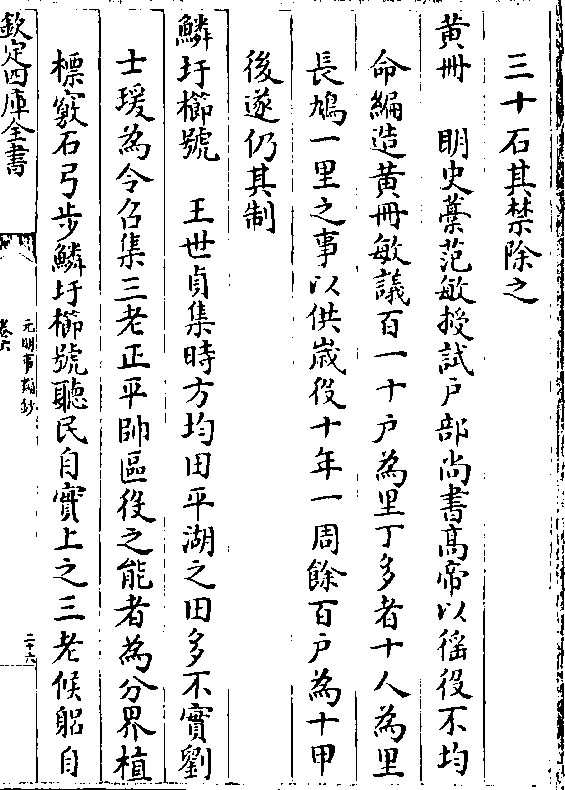 三十石其禁除之
黃冊　明史藳范敏授試戸部尚書髙帝以徭役不均
命編造黃冊敏議百一十戸為里丁多者十人為里
長鳩一里之事以供歲役十年一周餘百戸為十甲
後遂仍其制
鱗圩櫛號　王世貞集時方均田平湖之田多不實劉
士瑗為令召集三老正平帥區役之能者為分界植
標竅石弓步鱗圩櫛號聽民自實上之三老候躬自
欽定四庫全書
元明事類鈔
卷六
二十六